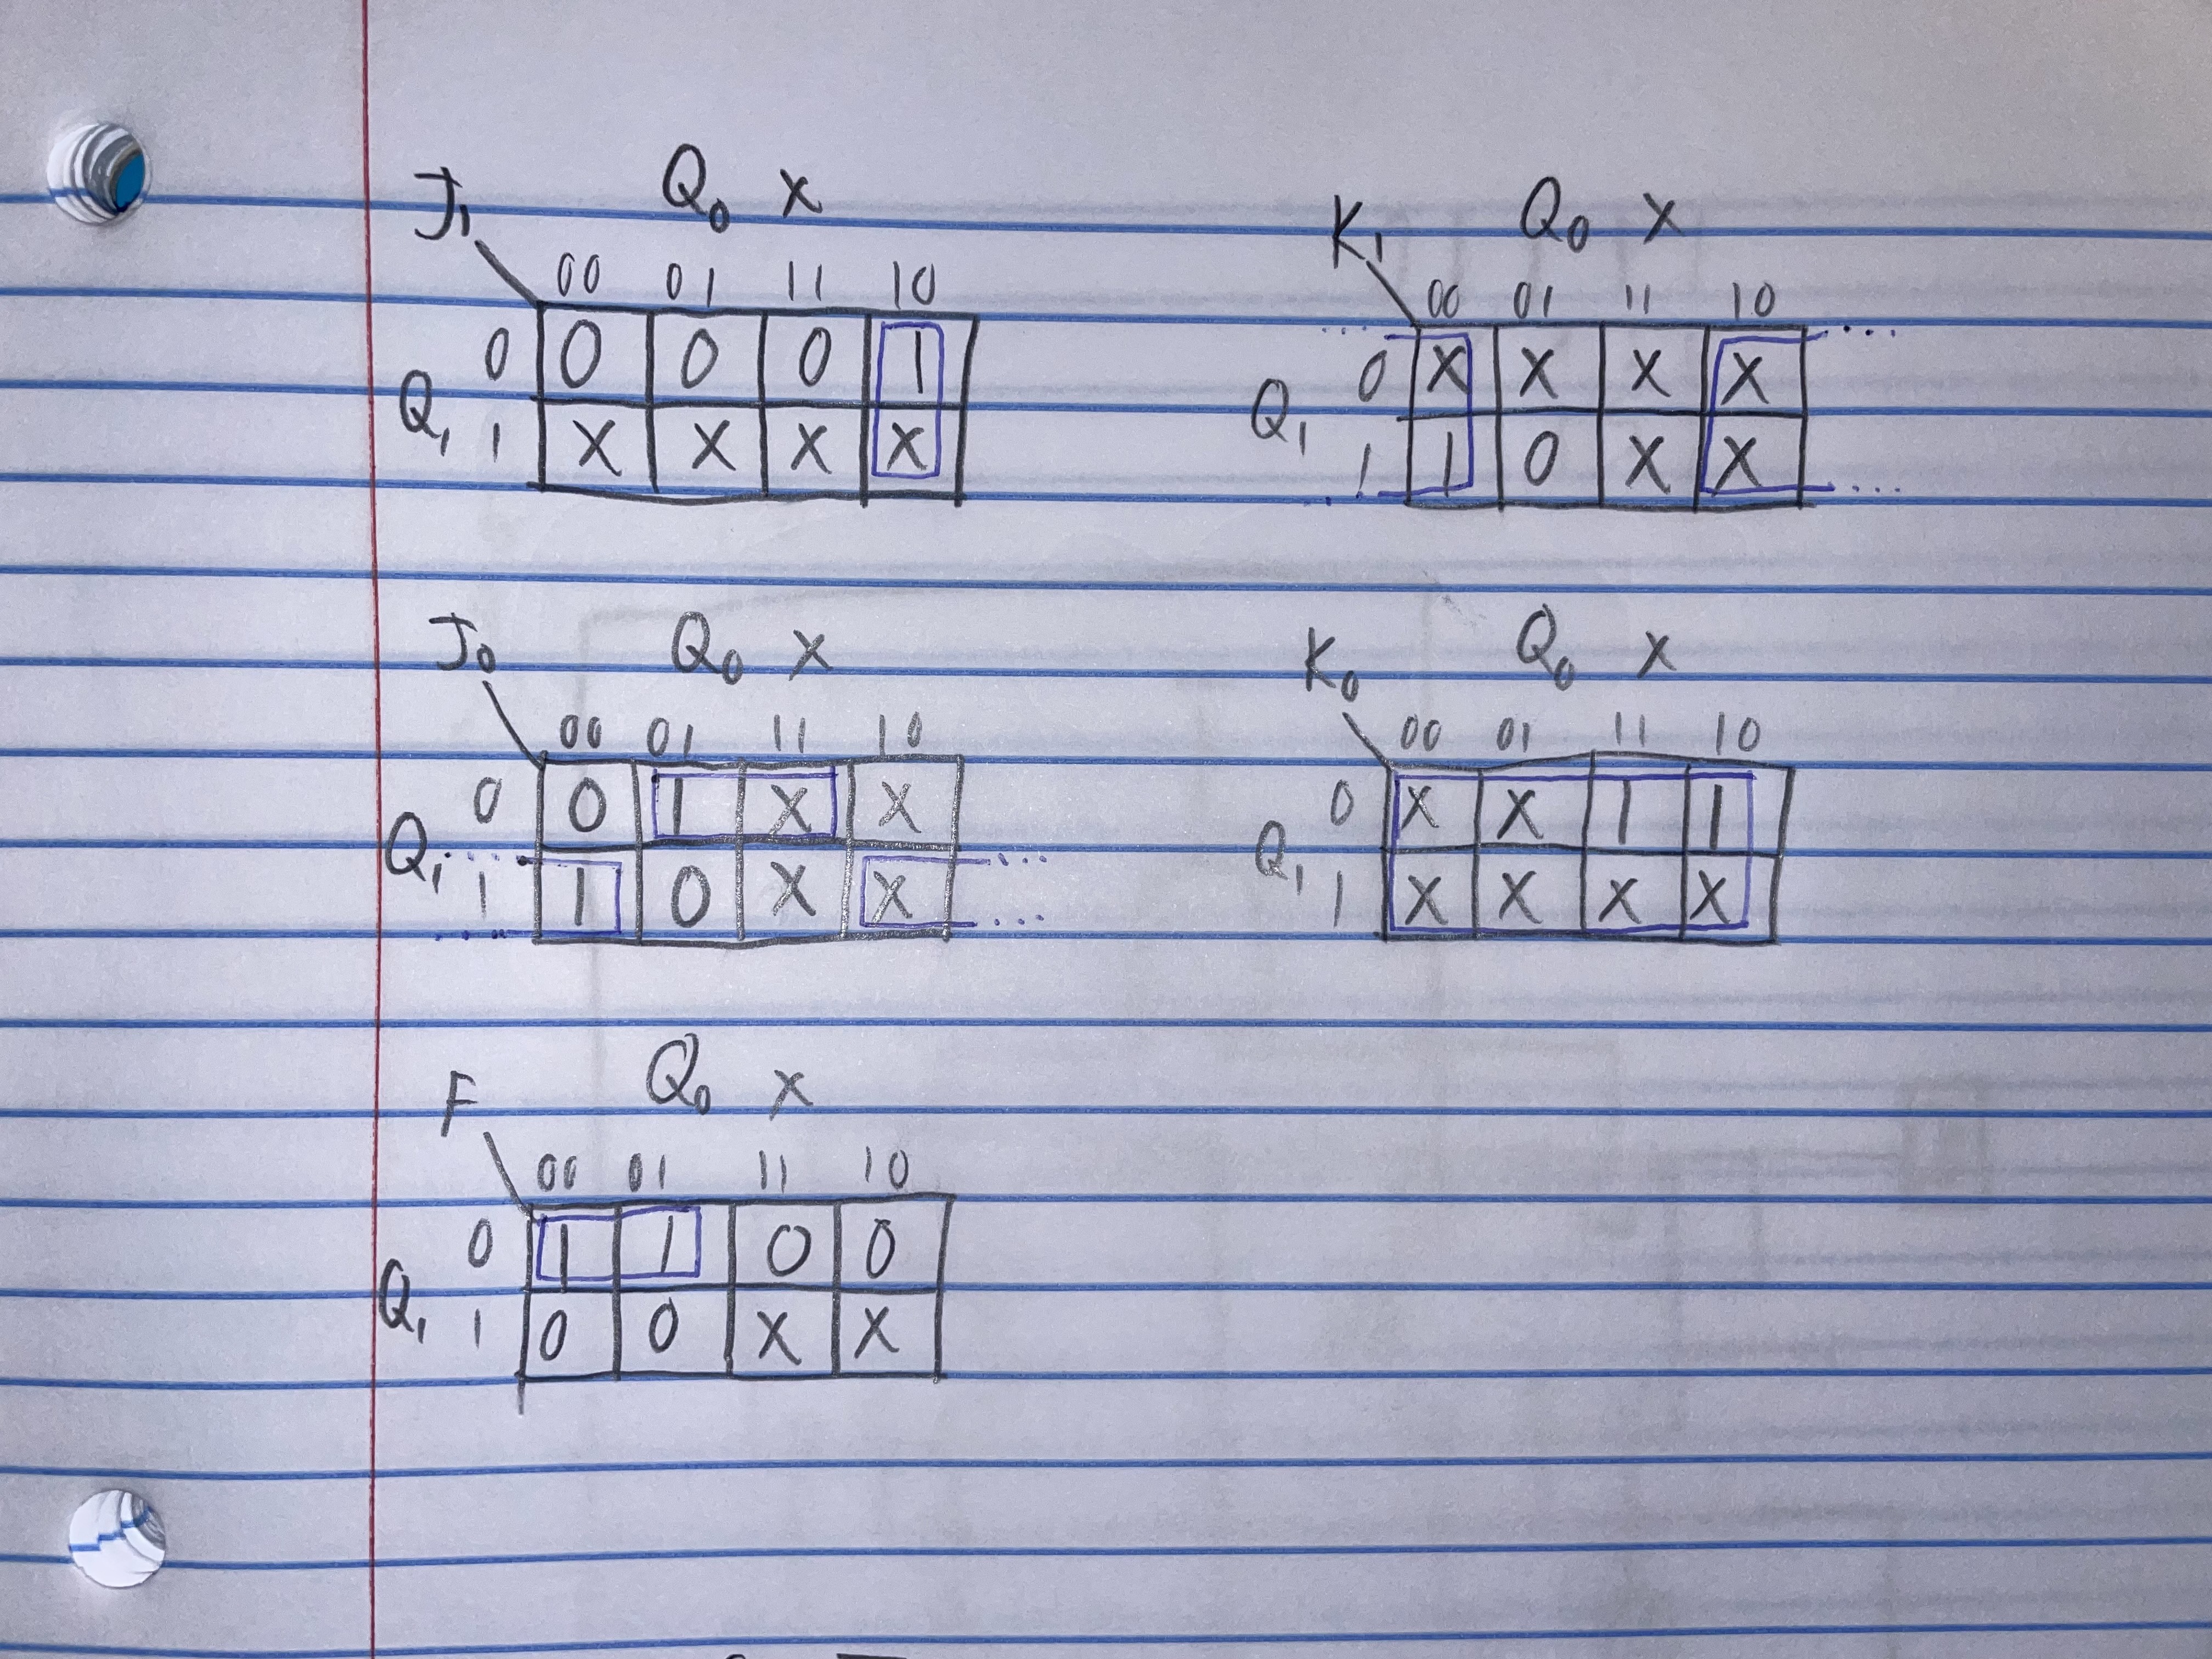 J₁ Q₀ X
00 01 11 10
0 0 0 0 1
Q₁ 1 X X X X
K₁ Q₀ X
00 01 11 10
0 X X X X
Q₁ 1 1 0 X X
J₀ Q₀ X
00 01 11 10
0 0 1 X X
Q₁ 1 1 0 X X
K₀ Q₀ X
00 01 11 10
0 X X 1 1
Q₁ 1 X X X X
F Q₀ X
00 01 11 10
0 1 1 0 0
Q₁ 1 0 0 X X